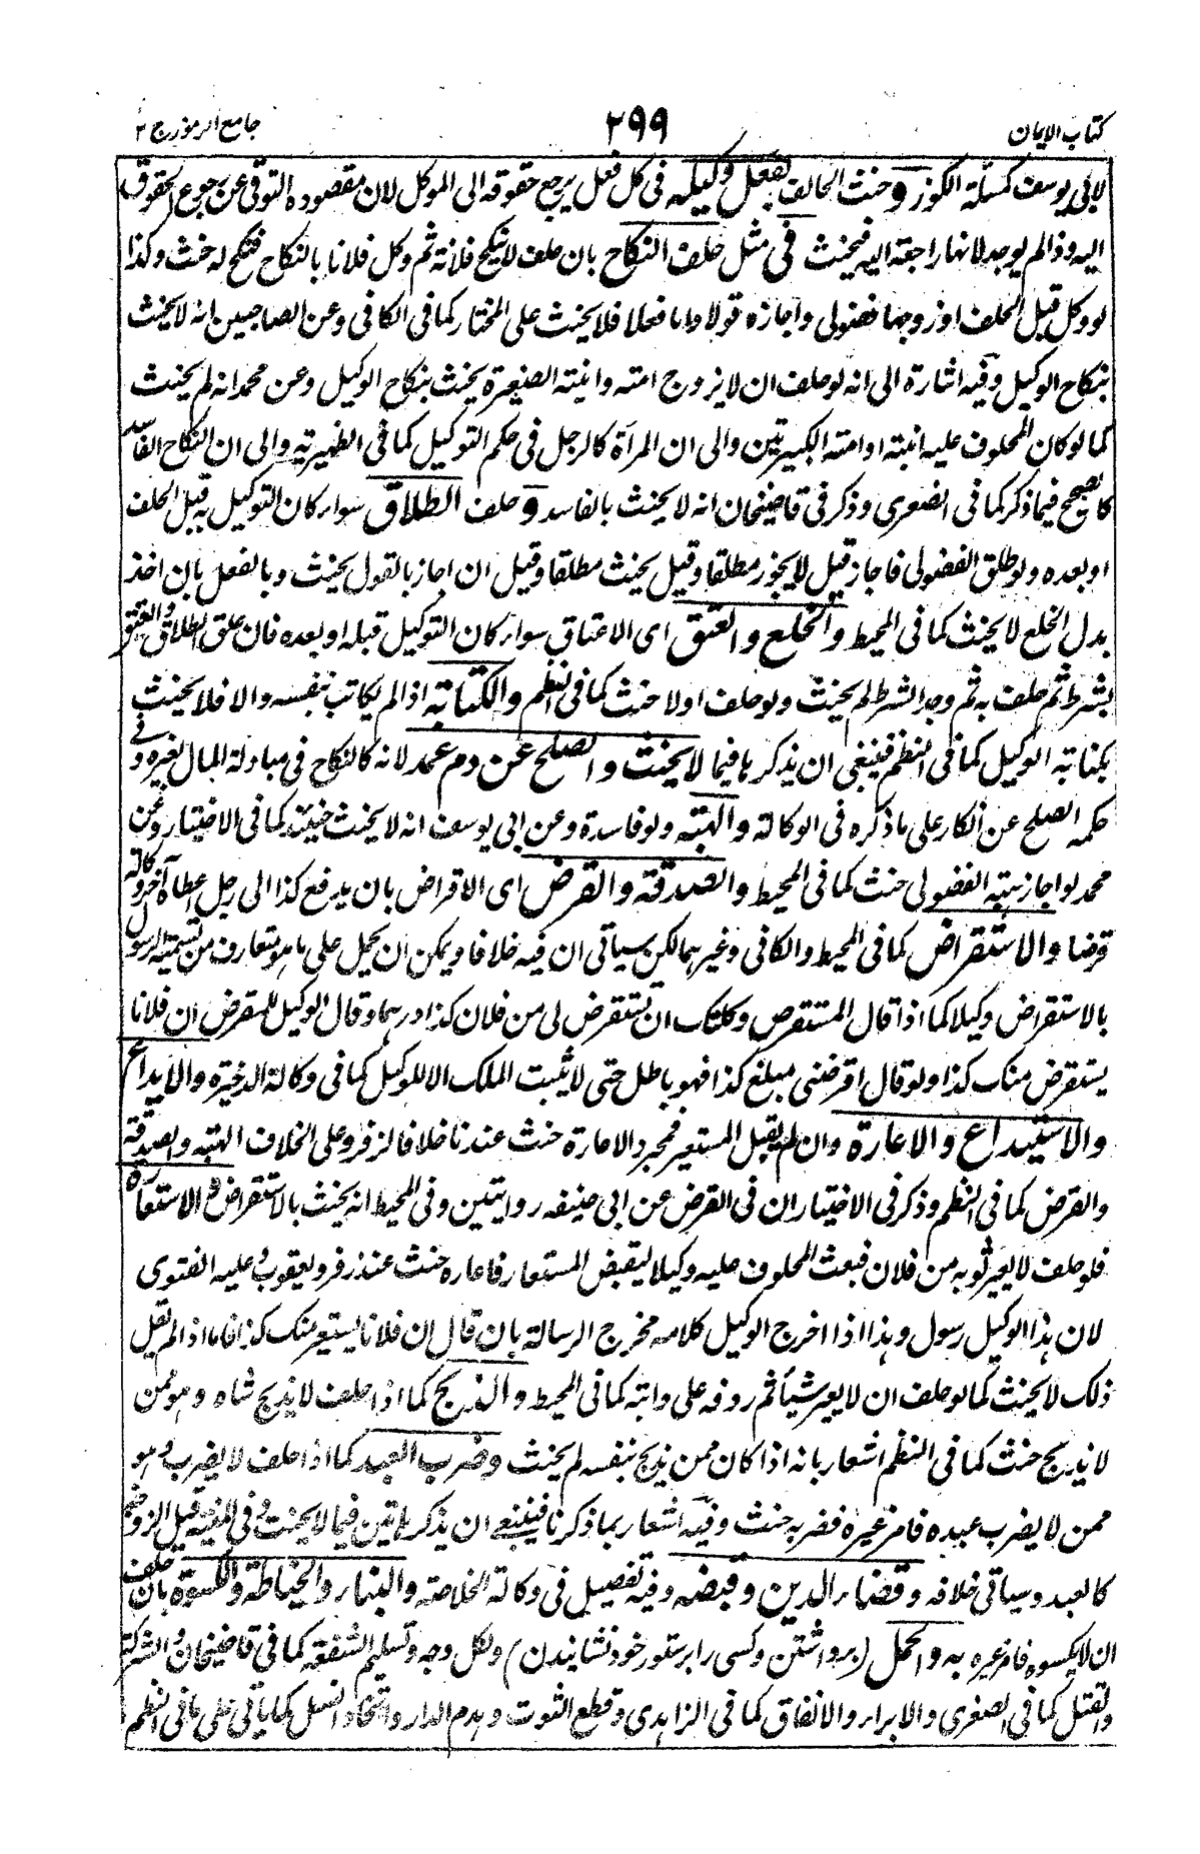 كتاب الايمان
٢٩٩
جامع الرموز ج ٢
لابى يوسف كمسألة الكوز و حنث الحالف بفعل وكيله فى كل فعل يرجع حقوقه الى الموكل لان مقصوده التوقى عن رجوع الحقوق
اليه وذا لم يوجد لانها راجعة اليه فيحنث فى مثل حلف النكاح بان حلف لا ينكح فلانة ثم وكل فلانا بالنكاح فنكح له حنث وكذا
لو وكل قبل الحلف او زوجها فضولى واجازه قولا واما فعلا فلا يحنث على المختار كما فى الكافى وعن الصاحبين انه لا يحنث
بنكاح الوكيل وفيه اشارة الى انه لو حلف ان لا يزوج امته وابنته الصغيرة يحنث بنكاح الوكيل وعن محمد انه لم يحنث
كما لو كان المحلوف عليه ابنته او امته الكبيرتين والى ان المرأة كالرجل فى حكم التوكيل كما فى الظهيرية والى ان النكاح الفاسد
كالصحيح فيما ذكر كما فى الصغرى وذكر فى قاضيخان انه لا يحنث بالفاسد و حلف الطلاق سواء كان التوكيل به قبل الحلف
او بعده ولو طلق الفضولى فاجاز قيل لا يجوز مطلقا وقيل يحنث مطلقا وقيل ان اجاز بالقول يحنث وبالفعل بان اخذ
بدل الخلع لا يحنث كما فى المحيط والخلع والعتق اى الاعتاق سواء كان التوكيل قبله او بعده فان علق الطلاق والعتق
بشرط ثم حلف به ثم وجد الشرط لم يحنث ولو حلف اولا حنث كما فى النظم والكتابة اذا لم يكاتب بنفسه والا فلا يحنث
بكتابة الوكيل كما فى النظم فينبغى ان يذكرها فيما لا يحنث والصلح عن دم عمد لانه كالنكاح فى مبادلة المال بغيره وفى
حكمه الصلح عن انكار على ما ذكره فى الوكالة والهبة ولو فاسدة وعن ابى يوسف انه لا يحنث حينئذ كما فى الاختيار وعن
محمد لو اجاز هبة الفضولى حنث كما فى المحيط والصدقة والقرض اى الاقراض بان يدفع كذا الى رجل اعطاه آخر وكالة
قرضا والاستقراض كما فى المحيط والكافى وغيرهما لكن سياتى ان فيه خلافا ويمكن ان يحمل على ما هو متعارف من تسمية الرسول
بالاستقراض وكيلا كما اذا قال المستقرض وكلتك ان تستقرض لى من فلان كذا درهما وقال الوكيل للمقرض ان فلانا
يستقرض منك كذا ولو قال اقرضنى مبلغ كذا فهو باطل حتى لا يثبت الملك الا للوكيل كما فى وكالة الذخيرة والايداع
والاستيداع والاعارة وان لم يقبل المستعير فمجرد الاعارة حنث عندنا خلافا لزفر وعلى الخلاف الهبة والصدقة
والقرض كما فى النظم وذكر فى الاختيار ان فى القرض عن ابى حنيفه روايتين وفى المحيط انه يحنث بالاستقراض والاستعارة
فلو حلف لا يعير ثوبه من فلان فبعث المحلوف عليه وكيلا ليقبض المستعار فاعاره حنث عند زفر ويعقوب وعليه الفتوى
لان هذا الوكيل رسول وهذا اذا اخرج الوكيل كلامه مخرج الرسالة بان قال ان فلانا يستعير منك كذا فاما اذا لم يقل
ذلك لا يحنث كما لو حلف ان لا يعير شيأ ثم ردفه على دابته كما فى المحيط والذبح كما اذا حلف لا يذبح شاه وهو ممن
لا يذبح حنث كما فى النظم اشعار بانه اذا كان ممن يذبح بنفسه لم يحنث وضرب العبد كما اذا حلف لا يضرب وهو
ممن لا يضرب عبده فامر غيره فضربه حنث وفيه اشعار بما ذكرنا فينبغى ان يذكر هاتين فيما لا يحنث وفى المنية قيل الزوجة
كالعبد وسياتى خلافه وقضاء الدين وقبضه وفيه تفصيل فى وكالة الخلاصة والبناء والخياطة والكسوة بان حلف
ان لا يكسوه فامر غيره به والحمل (برداشتن وكسى را برستور خود نشانيدن) ولكل وجه وتسليم الشفعة كما فى قاضيخان والشركة
والقتل كما فى الصغرى والابراء والانفاق كما فى الزاهدى وقطع الثوب وهدم الدار واتخاذ النعل كما ياتى على ما فى النظم